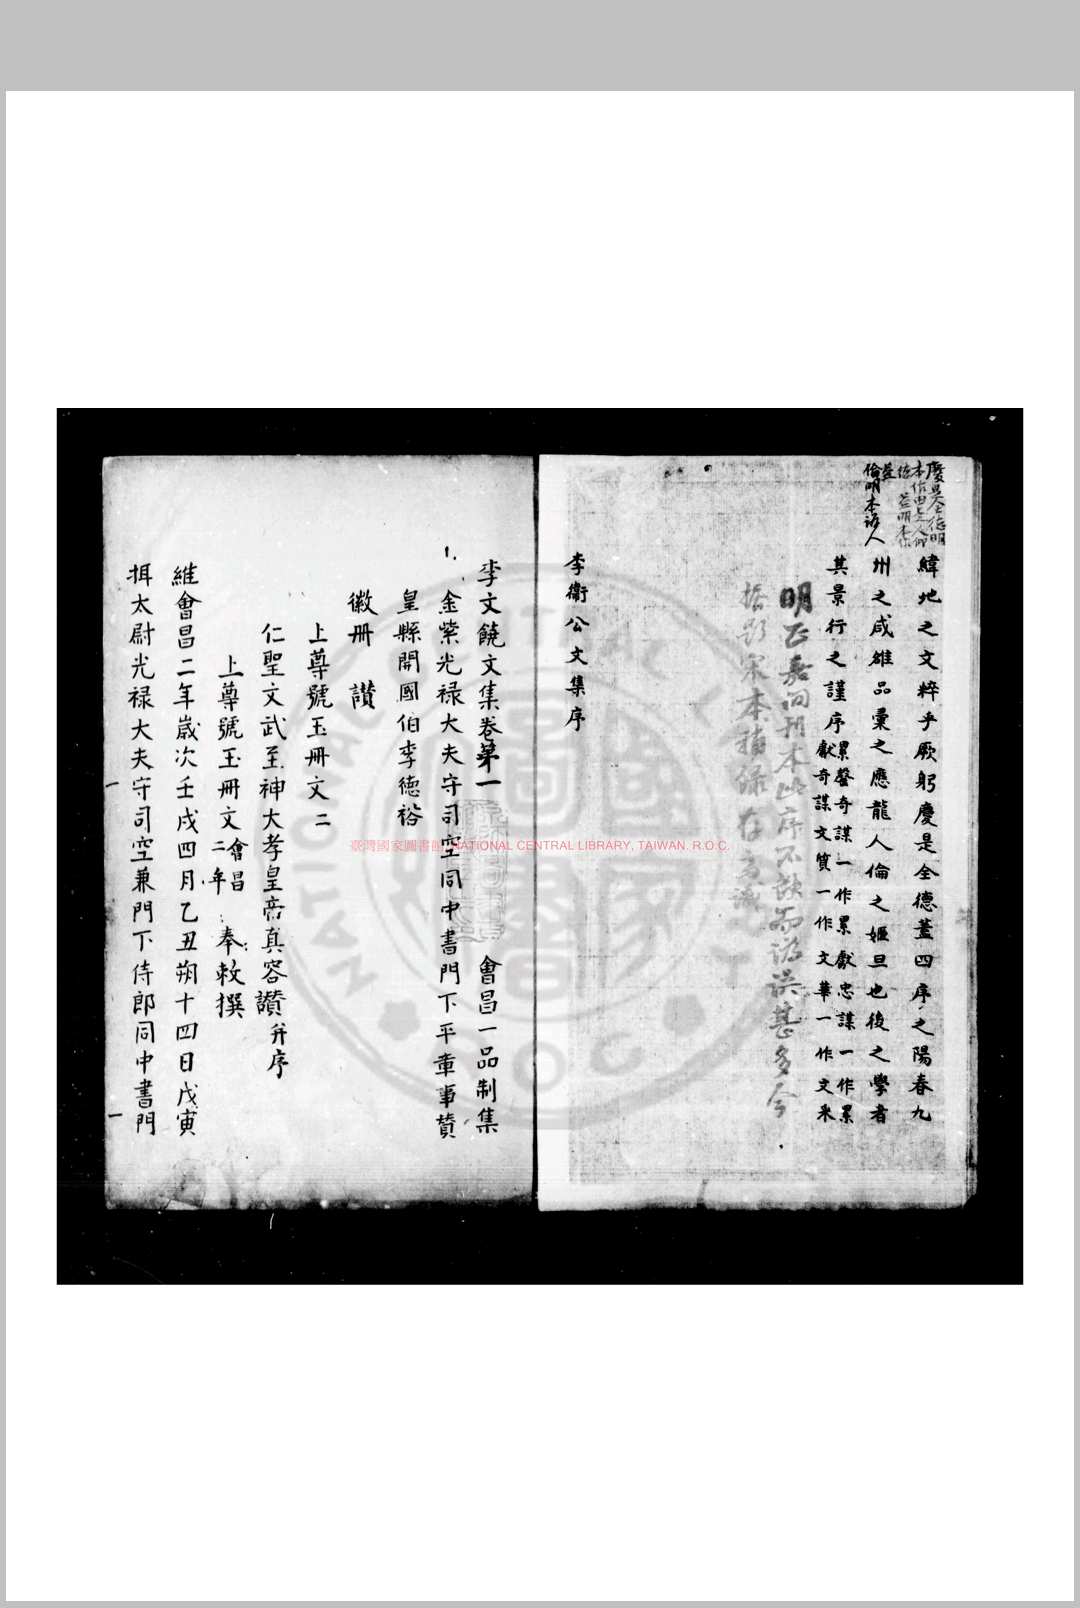 緯地之文粹乎厥躬慶是全德蓋四序之陽春九
州之咸雄品彙之應龍人倫之姬旦也後之學者
其景行之謹序
累罄奇謀一作累獻忠謀一作累
獻奇謀文質一作文華一作文米
明正嘉間刊本此序不缺而譌誤甚多今
宋本補錄存
李衞公文集序
李文饒文集卷第一 會昌一品制集
金紫光祿大夫守司空同中書門下平章事贊
皇縣開國伯李德裕
徽冊 讃
上尊號玉冊文二
仁聖文武至神大孝皇帝真容讃并序
上尊號玉冊文會昌二年奉敕撰
維會昌二年歲次壬戌四月乙丑朔十四日戊寅
攝太尉光祿大夫守司空兼門下侍郎同中書門
臺灣國家圖書館 NATIONAL CENTRAL LIBRARY, TAIWAN. R.O.C.